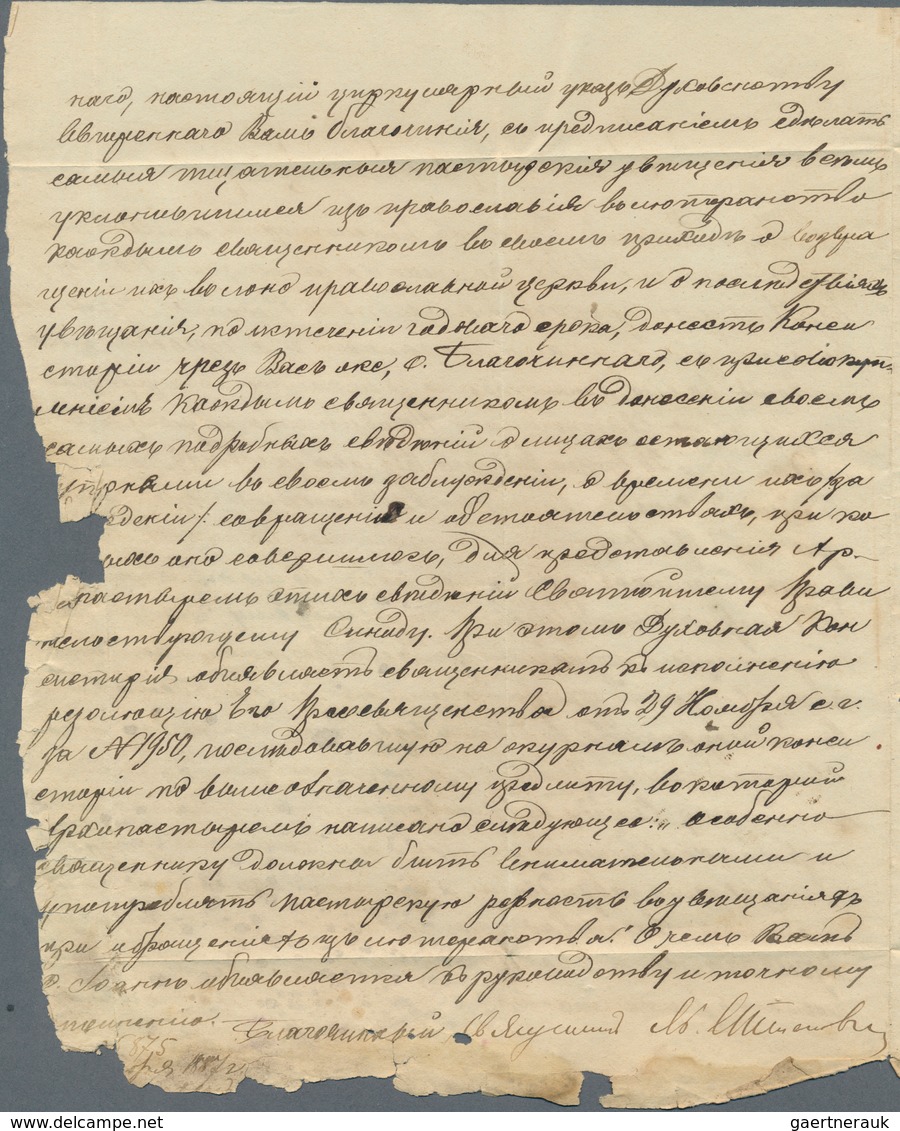 наго, настоящій циркулярный указъ Духовенству
ввѣреннаго Вамъ благочинія, съ предписаніемъ сдѣлать
самыя тщательныя пастырскія увѣщанія всѣмъ
уклонившимся изъ православія въ лютеранство
каждымъ священникомъ въ своемъ приходѣ о возвра
щеніи ихъ въ лоно православной церкви, и о послѣдствіяхъ
увѣщанія, по истеченіи годоваго срока, донесть Конси
сторіи чрезъ Васъ же, о. Благочиннаго, съ
каждымъ священникомъ въ донесеніи своемъ
самыхъ подробныхъ свѣдѣній о лицахъ остающихся
въ своемъ заблужденіи, о времени ихъ /за
деніи/ совращенія и обстоятельствахъ, при ко
ихъ оно совершилось, для представленія Ар-
пастыремъ этихъ свѣдѣній Святѣйшему Прави
тельствующему Синоду. При этомъ Духовная Кон
систорія объявляетъ священникамъ къ исполненію
резолюцію Его Преосвященства отъ 29 Ноября с. г.
за № 1950, послѣдовавшую на журналъ оной конси
сторіи по вышеозначенному предмету, въ которой
Архипастыремъ написано слѣдующее: „особенно
священнику должны быть внимательными и
употреблять пастырскую ревность въ увѣщаніяхъ
при обращеніяхъ изъ лютеранства." О чемъ Вамъ
о. Іоаннъ объявляется къ руководству и точному
исполненію.
Благочинный, Священникъ
875
gaertnerauk